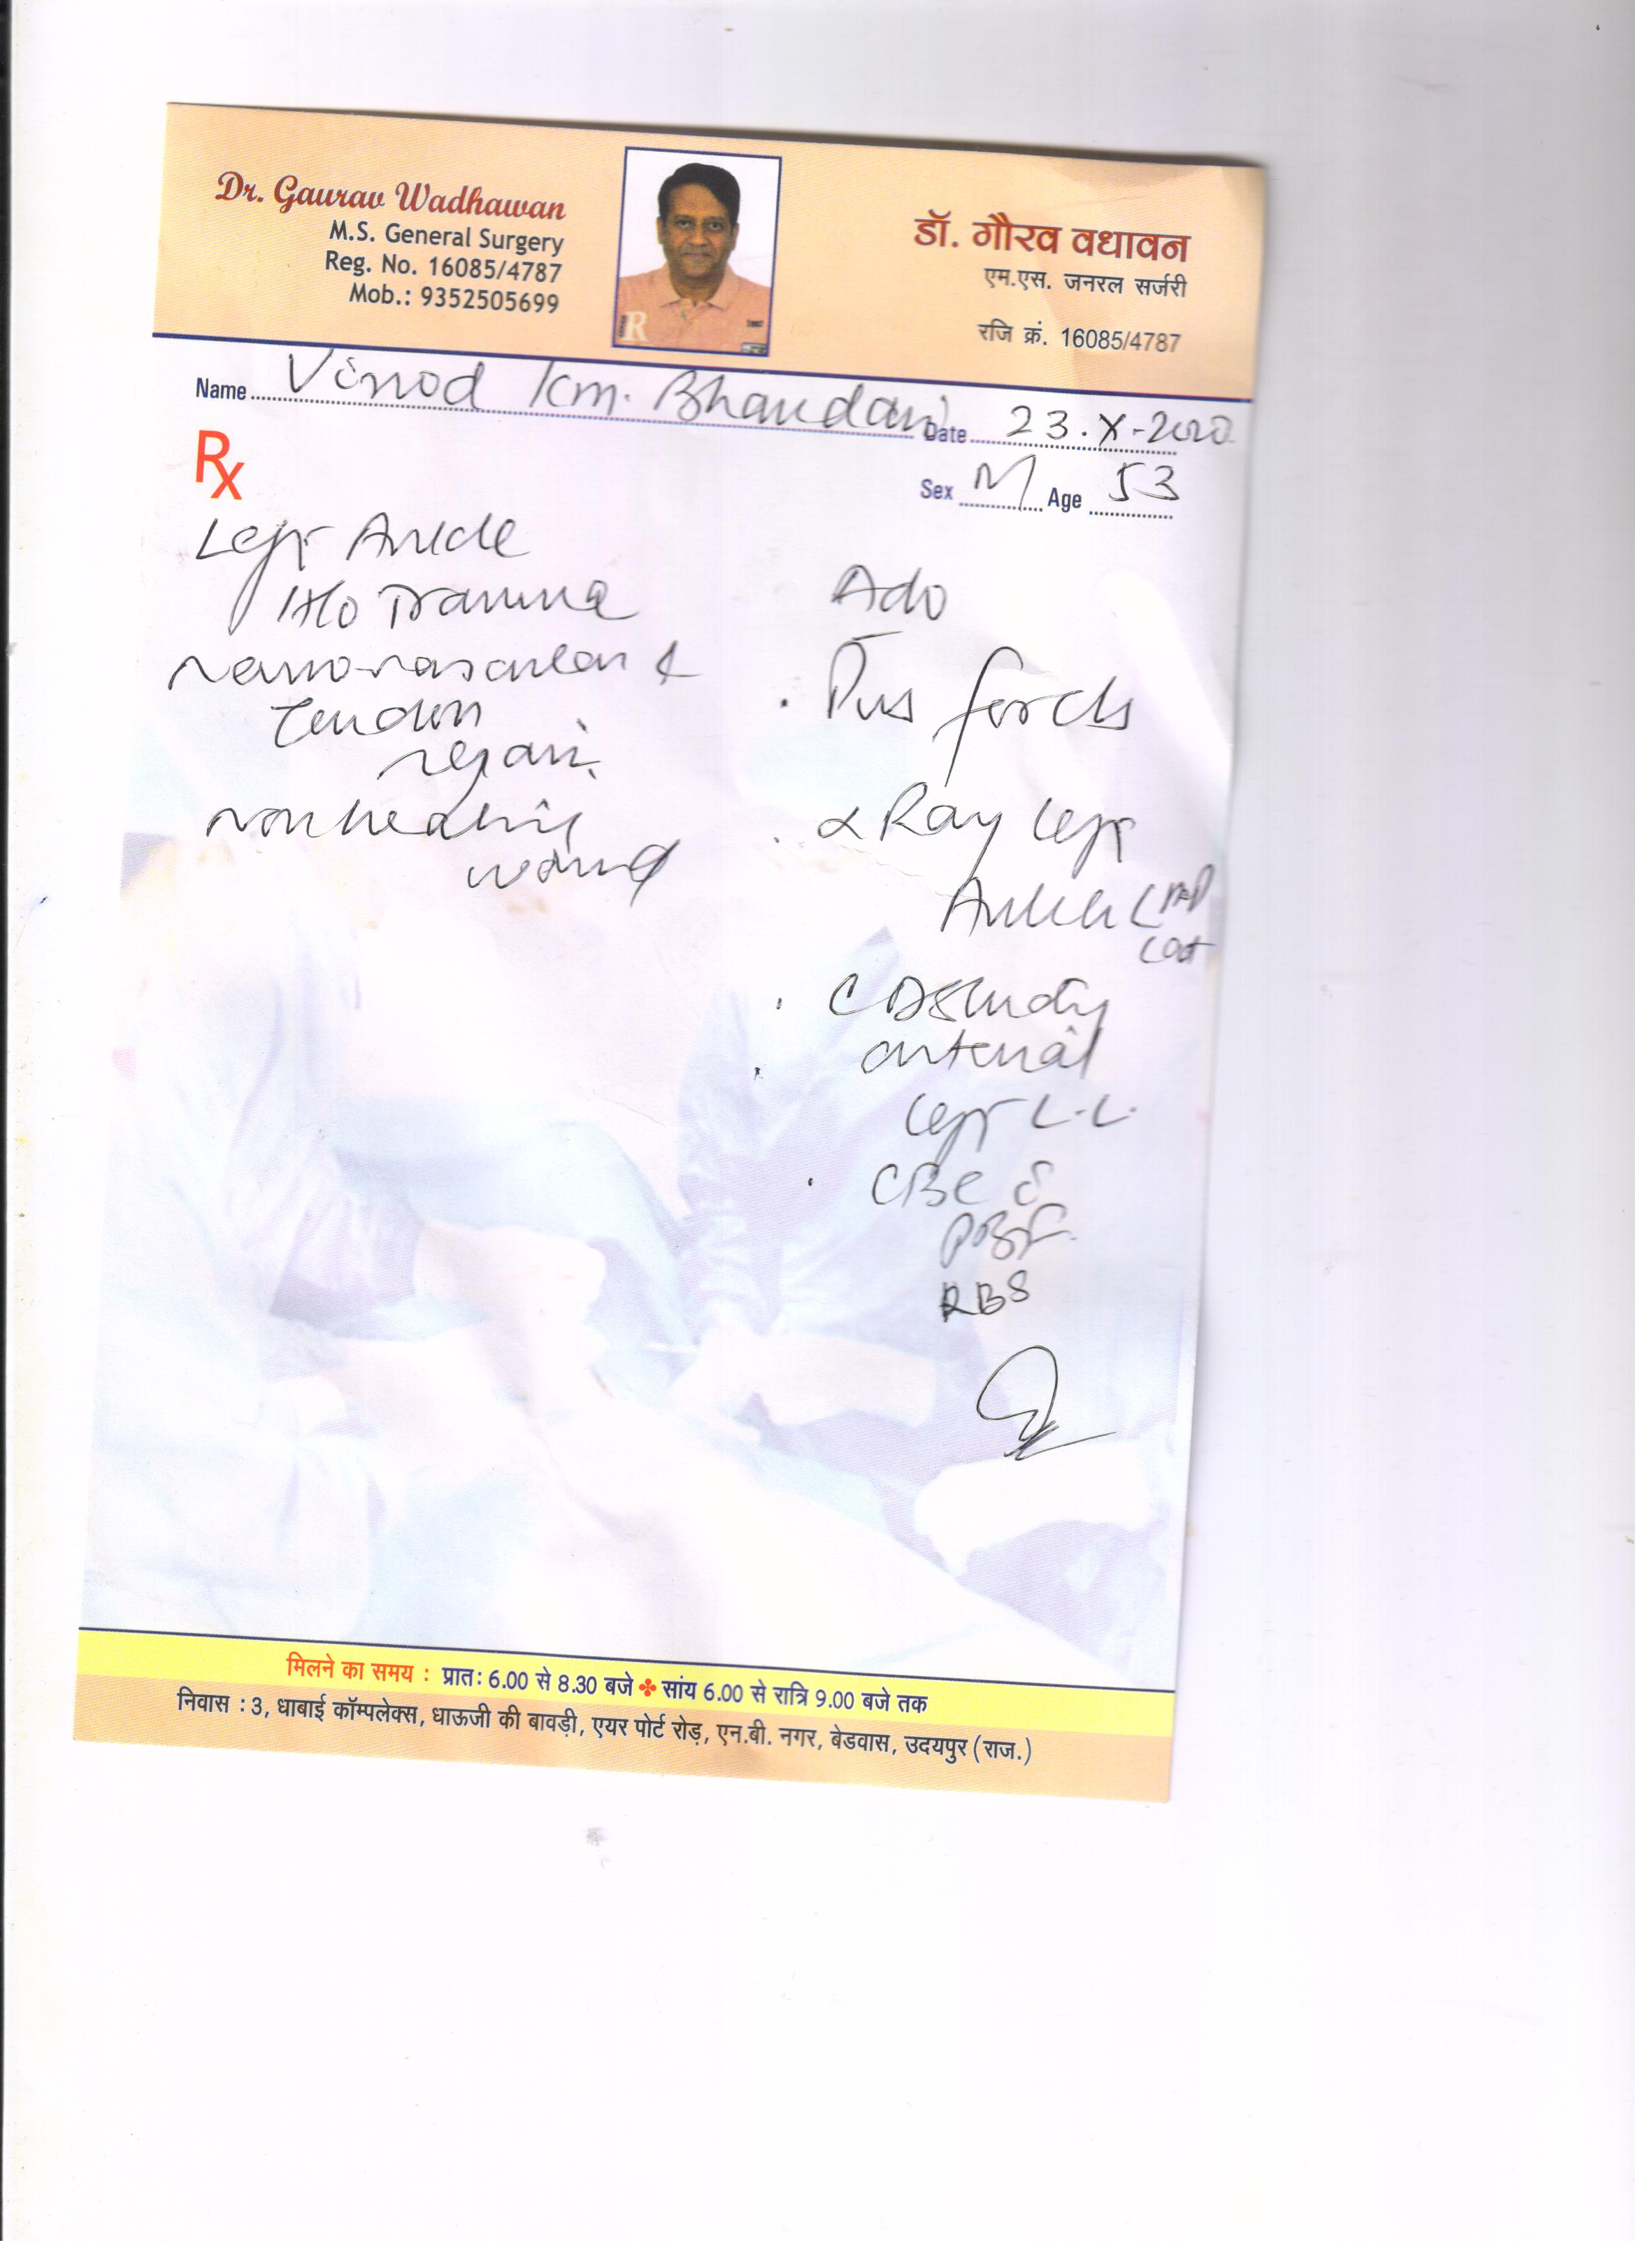 Dr. Gaurav Wadhawan
M.S. General Surgery
Reg. No. 16085/4787
Mob.: 9352505699
R
डॉ. गौरव वधावन
एम.एस. जनरल सर्जरी
रजि क्रं. 16085/4787
Name Vinod Km. Bhandari Date 23.X-2020
Sex M Age 53
Rx
Left Ankle
H/o Trauma
neurovascular &
Tendon
repair.
nonhealing
wound
Adv
. Pus for c/s
. x Ray Left
Ankle AP
Lat
. CD study
arterial
Left L.L.
. CBC c̄
PBF.
RBS
मिलने का समय : प्रातः 6.00 से 8.30 बजे ✤ सांय 6.00 से रात्रि 9.00 बजे तक
निवास : 3, धाबाई कॉम्पलेक्स, धाऊजी की बावड़ी, एयर पोर्ट रोड़, एन.बी. नगर, बेडवास, उदयपुर (राज.)